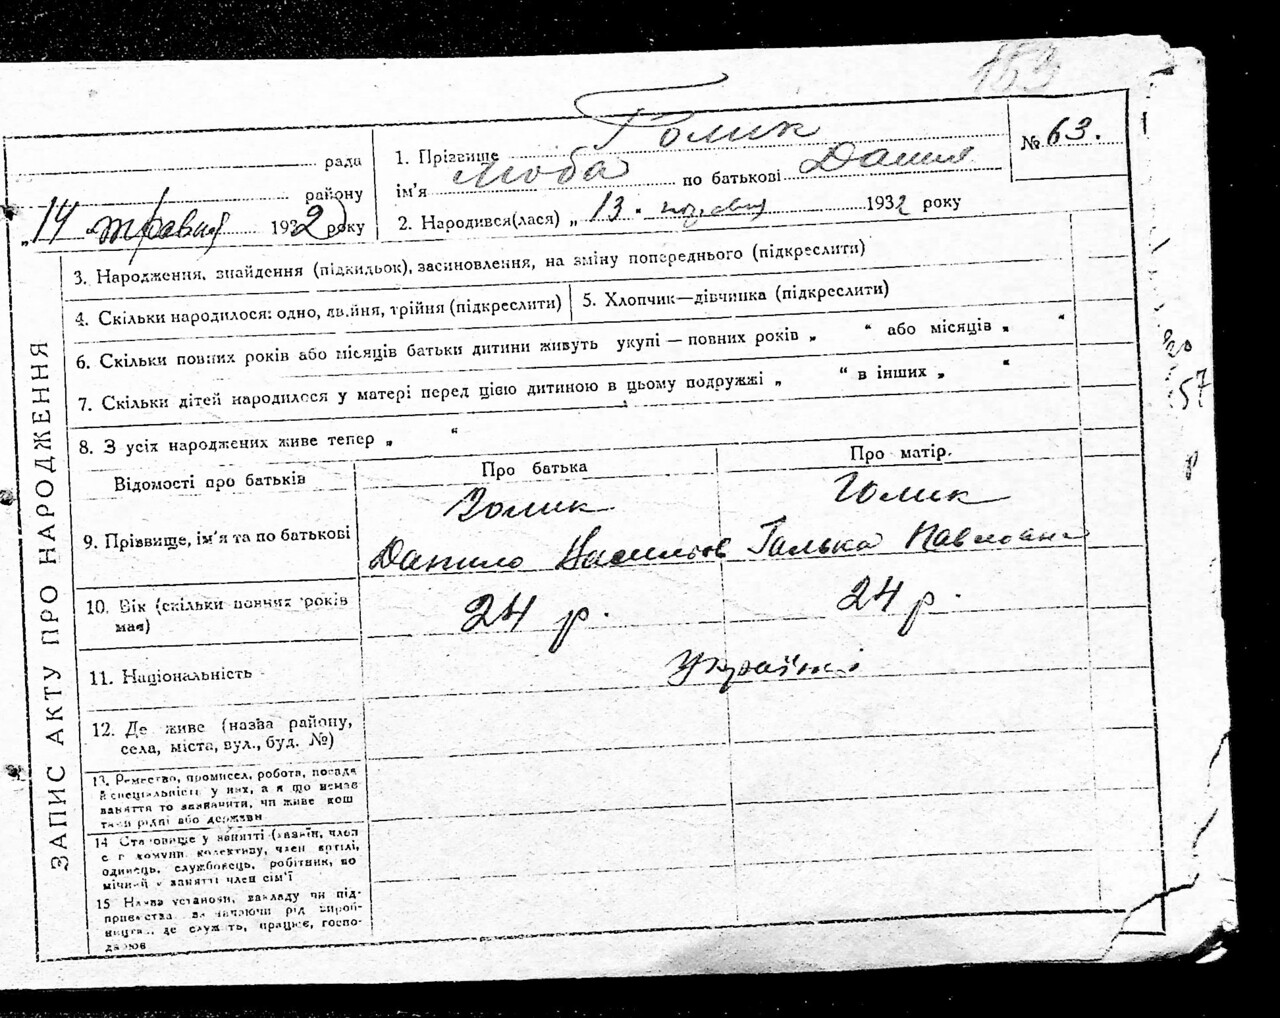 153
рада
району
„14 травня 1932 року
1. Прізвище Голик
ім'я Люба по батькові Данил
2. Народився(лася) „13" 1932 року
№ 63.
ЗАПИС АКТУ ПРО НАРОДЖЕННЯ
3. Народження, знайдення (підкидьок), засиновлення, на зміну попереднього (підкреслити)
4. Скільки народилося: одно, двійня, трійня (підкреслити)
5. Хлопчик—дівчинка (підкреслити)
6. Скільки повних років або місяців батьки дитини живуть укупі — повних років „ “ або місяців „ “
7. Скільки дітей народилося у матері перед цією дитиною в цьому подружжі „ “ в інших „ “
8. З усіх народжених живе тепер „ “
Відомості про батьків
Про батька
Про матір.
9. Прізвище, ім'я та по батькові
Голик
Данило Васильов
Голик
Галька Павловна
10. Вік (скільки повних років
має)
24 р.
24 р.
11. Національність
Україні
12. Де живе (назва району,
села, міста, вул., буд. №)
13. Ремество, промисел, робота, посада
й спеціяльність у них, а якщо немає
заняття то зазначити, чи живе кош
тами рідні або держави
14 Становище у занятті (хазяїн, член
с г комуни колективу, член артілі,
одинець, службовець, робітник, по
мічний у занятті член сім'ї
15 Назва установи, закладу чи під-
приємства, зазначаючи рід вироб-
ництва, де служить, працює, госпо-
дарює
57